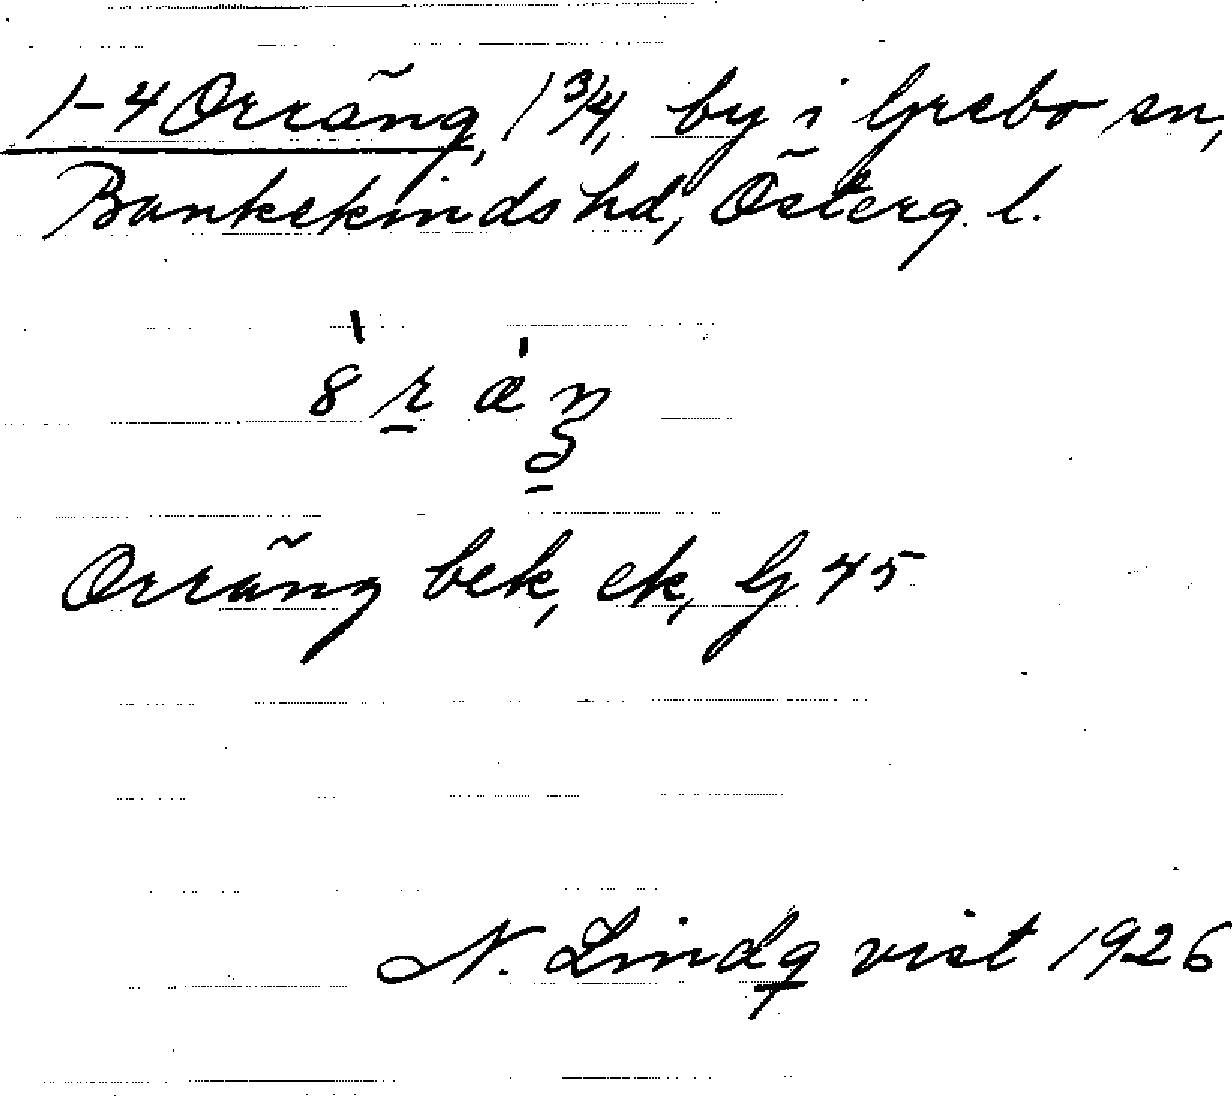 1-4 Orräng, 1 3/4, by i Grebo sn,
Bankekinds hd, Österg. l.
Orräng bek, ek, G 45
N. Lindqvist 1926